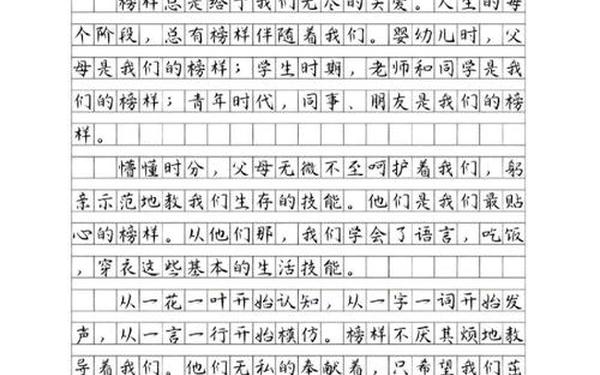 榜样总是给予我们无尽的关爱。人生的每
个阶段，总有榜样伴随着我们。婴幼儿时，父
母是我们的榜样；学生时期，老师和同学是我
们的榜样；青年时代，同事、朋友是我们的榜
样。
懵懂时分，父母无微不至呵护着我们，躬
亲示范地教我们生存的技能。他们是我们最贴
心的榜样。从他们那，我们学会了语言，吃饭
，穿衣这些基本的生活技能。
从一花一叶开始认知，从一字一词开始发
声，从一言一行开始模仿。榜样不厌其烦地教
导着我们。他们无私的奉献着，只希望我们茁